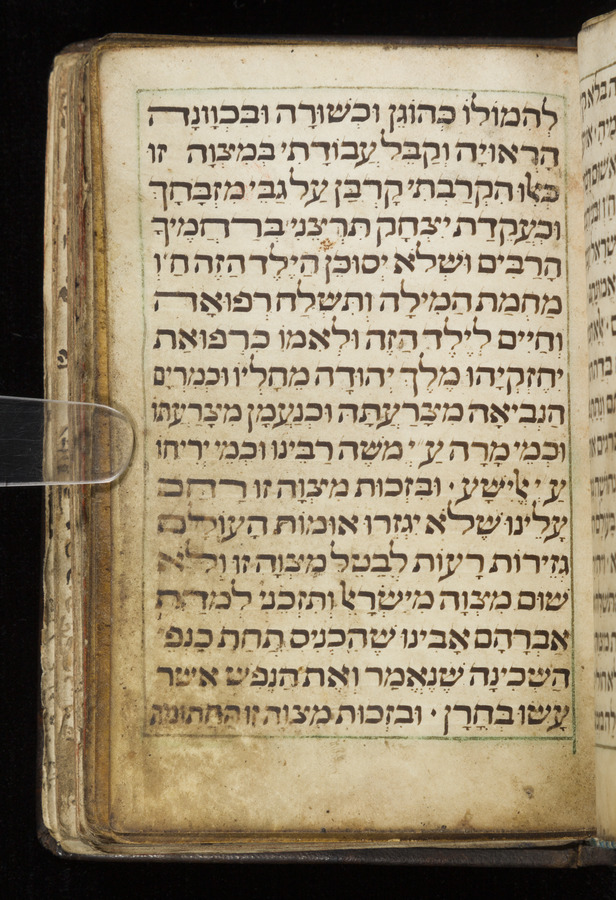 להמולו כהוגן וכשורה ובכוונה
הראויה וקבל עבודתי במצוה זו
כאלו הקרבתי קרבן על גבי מזבחך
וכעקדת יצחק תרצני ברחמיך
הרבים ושלא יסוכן הילד הזה ח״ו
מחמת המילה ותשלח רפואה
וחיים לילד הזה ולאמו כרפואת
יחזקיהו מלך יהודה מחליו וכמרים
הנביאה מצרעתה וכנעמן מצרעתו
וכמי מרה ע״י משה רבינו וכמי יריחו
ע״י אלישע · ובזכות מצוה זו רחם
עלינו שלא יגזרו אומות העולם
גזירות רעות לבטל מצוה זו ולא
שום מצוה מישראל ותזכני למדת
אברהם אבינו שהכניס תחת כנפי
השכינה שנאמר ואת הנפש אשר
עשו בחרן · ובזכות מצוה זו